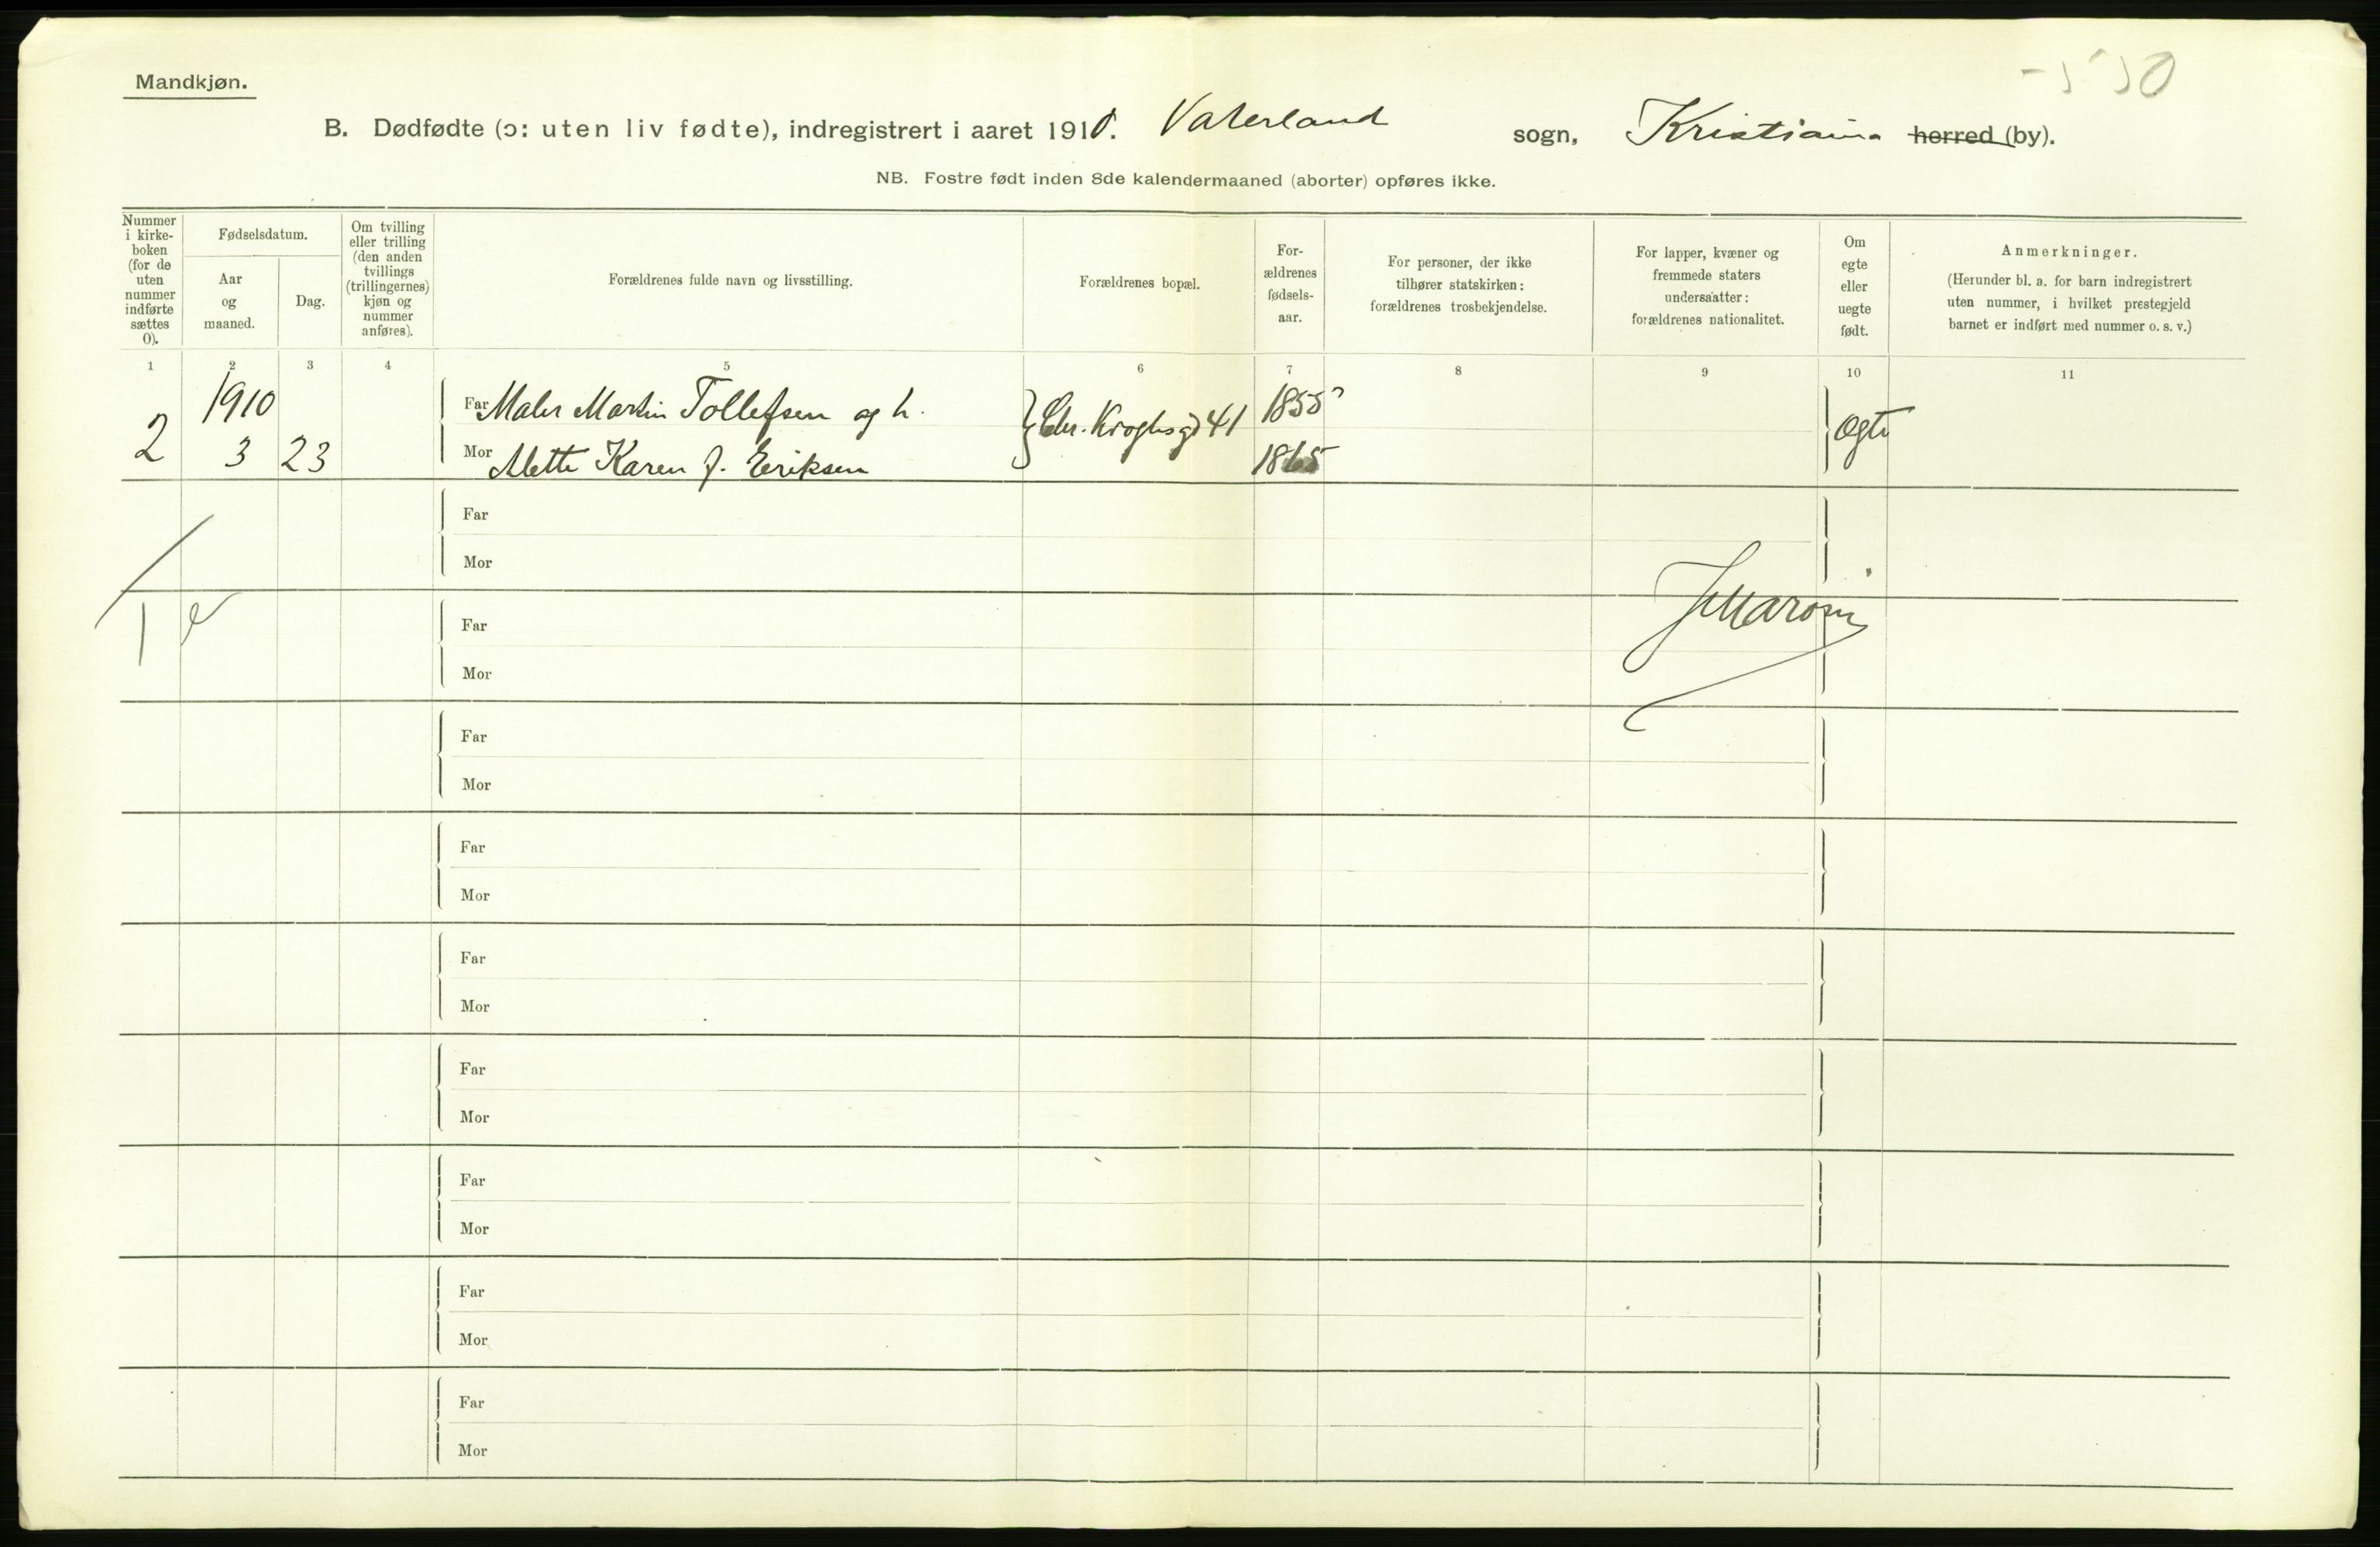 Mandkjøn.
B. Dødfødte (ɔ: uten liv fødte), indregistrert i aaret 1910. Vaterland sogn, Kristiania herred (by).
NB. Fostre født inden 8de kalendermaaned (aborter) opføres ikke.
Nummer i kirke-boken (for de uten nummer indførte sættes 0).
Fødselsdatum.
Aar og maaned.
Dag.
Om tvilling eller trilling (den anden tvillings (trillingernes) kjøn og nummer anføres).
Forældrenes fulde navn og livsstilling.
Forældrenes bopæl.
For-ældrenes fødsels-aar.
For personer, der ikke tilhører statskirken: forældrenes trosbekjendelse.
For lapper, kvæner og fremmede staters undersaatter: forældrenes nationalitet.
Om egte eller uegte født.
Anmerkninger.
(Herunder bl. a. for barn indregistrert uten nummer, i hvilket prestegjeld barnet er indført med nummer o. s. v.)
1 2 3 4 5 6 7 8 9 10 11
1910
Far Maler Martin Tollefsen og h. Chr. Kroghsgd 41 1855
2 3 23 Mor Alette Karen f. Eriksen 1865 Ægte
Far
Mor
Far
Mor
Far
Mor
Far
Mor
Far
Mor
Far
Mor
Far
Mor
Far
Mor
Far
Mor